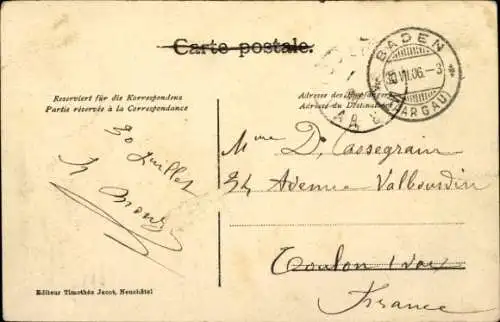 Carte postale.
BADEN
(AARGAU)
Reserviert für die Korrespondenz
Partie réservée à la Correspondance
Adresse des Empfängers
Adresse du Destinataire
30 Juillet
Mme D. Cassegrain
34 Avenue Vallbourdin
Toulon (Var
France
Editeur Timothée Jacot, Neuchâtel